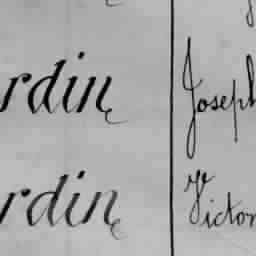 rdin Joseph
rdin Victor